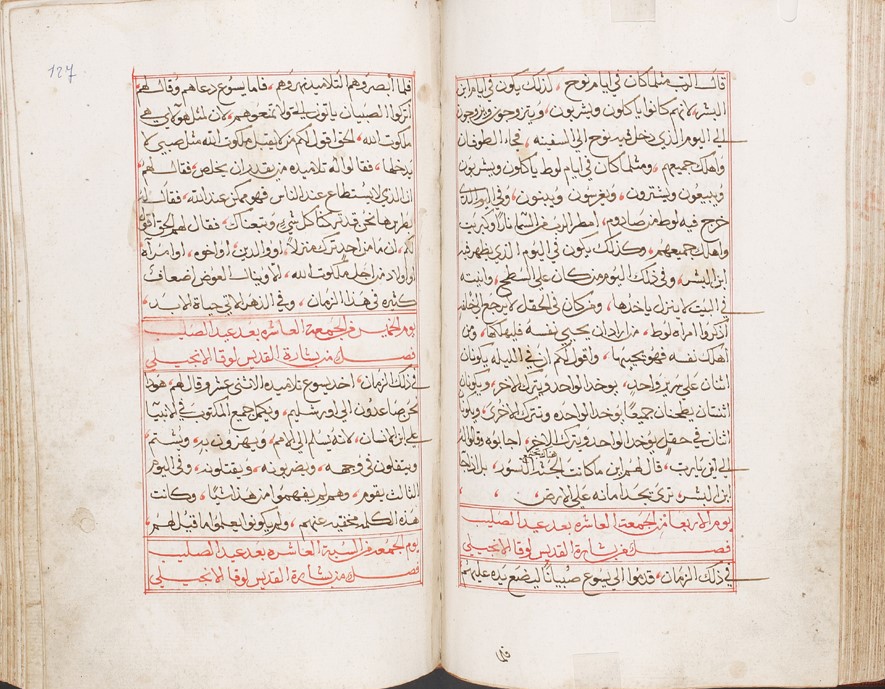 قال الرب مثلما كان في ايام نوح، كذلك يكون في ايام ابن
البشر، لانهم كانوا ياكلون ويشربون، ويتزوجون ويزوجون
الي اليوم الذي دخل فيه نوح الي السفينه، فجاء الطوفان
واهلك جميعهم، ومثلما كان في ايام لوط ياكلون ويشربون
ويبيعون ويشترون، ويغرسون ويبنون، وفي اليوم الذي
خرج فيه لوط من صادوم، امطر الرب من السما نارًا وكبريت
واهلك جميعهم، وكذلك يكون في اليوم الذي يظهر فيه
ابن البشر، وفي ذلك اليوم من كان علي السطح، وانيته
في البيت لا ينزل ياخذها، ومن كان في الحقل لا يرجع الي خلفه
اذكروا امراة لوط، من اراد ان يحيي نفسه فليهلكها، ومن
اهلك نفسه فهو يحييها، واقول لكم ان في الليله يكونان
اثنان علي سرير واحد، يوخد الواحد ويترك الاخر، ويكونان
اثنتان يطحنان جميعًا، يوخد الواحده وتترك الاخرى، ويكونا
اثنان في حقل يوخد الواحد ويترك الاخر، اجابوه وقالوا له
الي اين يارب، قال لهم اين ما كانت الجثه النسور، بل اذا جا
ابن البشر، ترى يجد امانه علي الارض
يوم الاربعا من الجمعة العاشره بعد عيد الصليب
فصل من بشارة القديس لوقا الانجيلي
في ذلك الزمان، قدموا الي يسوع صبيانًا ليضع يده عليهم
فلما
127
فلما ابصروهم التلاميذ نهروهم، فاما يسوع دعاهم وقال لهم
اتركوا الصبيان ياتون الي ولا تمنعوهم، لان لمثل هولاي هي
ملكوت الله، الحق اقول لكم من لا يقبل ملكوت الله مثل صبي لا
يدخلها، فقالوا له تلاميذه من يقدر ان يخلص، فقال لهم
ان الذي لا يستطاع عند الناس فهو ممكن عند الله، فقال له
بطرس ها نحن قد تركنا كل شي وتبعناك، فقال لهم الحق اقول
لكم، ان ما من احد ترك منزلاً، او والدين، او اخوه، او امراه
او اولاد من اجل ملكوت الله، الا وينال العوض اضعاف
كثيره في هذا الزمان، وفي الدهر الاتي حياة الابد
يوم الخميس من الجمعة العاشره بعد عيد الصليب
فصل من بشارة القديس لوقا الانجيلي
في ذلك الزمان، اخد يسوع تلاميذه الاثني عشر وقال لهم، هوذا
نحن صاعدون الي اورشليم، ويكمل جميع المكتوب في الانبيا
علي ابن الانسان، لانه يسلم الي الامم، ويهزون به، ويشتم
ويتفلون في وجهه، ويضربونه، ويقتلونه، وفي اليوم
الثالث يقوم، وهم لم يفهموا من هذا شيًا، وكانت
هذه الكلمه مخفيه عنهم، ولم يكونوا يعلموا ما قيل لهم
يوم الجمعه من السبة العاشره بعد عيد الصليب
فصل من بشارة القديس لوقا الانجيلي